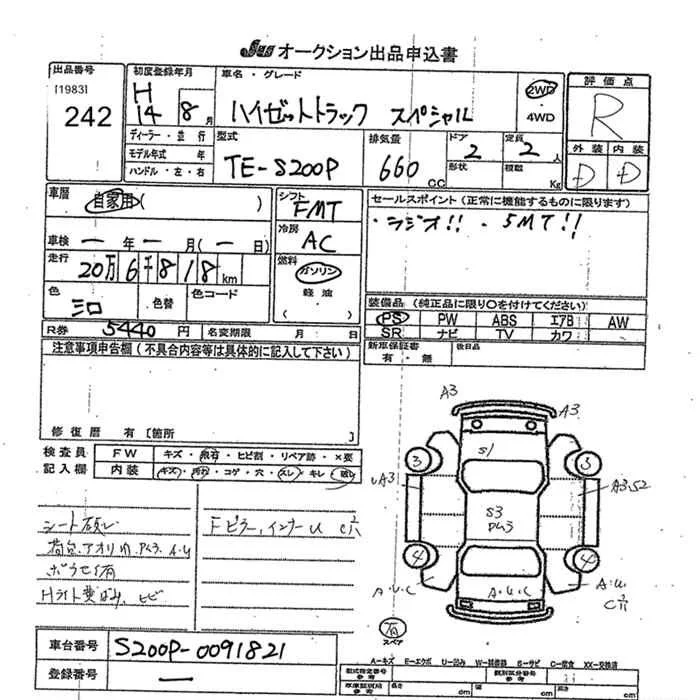 Jus オークション出品申込書
出品番号
[1983]
242
初度登録年月
H
14 8月
車名・グレード
ハイゼットトラック スペシャル
2WD
・
4WD
評価点
R
外装 内装
D D
ディーラー・並行
モデル年式 年
ハンドル・左・右
型式
TE-S200P
排気量
660cc
ドア
2
形状
定員
2人
積載
Kg
車歴
自家用( )
車検 ー年ー月(ー日)
走行
20万6千818km
色
シロ
色替
色コード
シフト
FMT
冷房
AC
燃料
ガソリン
・
軽油
( )
セールスポイント(正常に機能するものに限ります)
・ラジオ!! ・5MT!!
装備品(純正品に限り○を付けてください)
PS PW ABS エアB AW
SR ナビ TV カワ
R券 5440円 名変期限 月 日
新車保証書
有・無
後日品
注意事項申告欄(不具合内容等は具体的に記入して下さい)
修復歴 有 [箇所 ]
検査員
記入欄
FW キズ・飛石・ヒビ割・リペア跡・×要
内装 キズ・汚れ・コゲ・穴・スレ・キレ・破レ
シート破レ
Fピラー,インナーU C穴
Hライト ヒビ
A3
A3
S1
3
3
A3
A3.S2
S3
4
4
A.U.C
A.U.C
A.U.
C穴
有
スペア
車台番号 S200P-0091821
登録番号 ー
A-キズ E-エクボ U-凹み W-補修跡 S-サビ C-腐食 XX-交換済
型式指定番号
参考
類別区分番号
参考
長さ cm 幅 cm 高さ cm